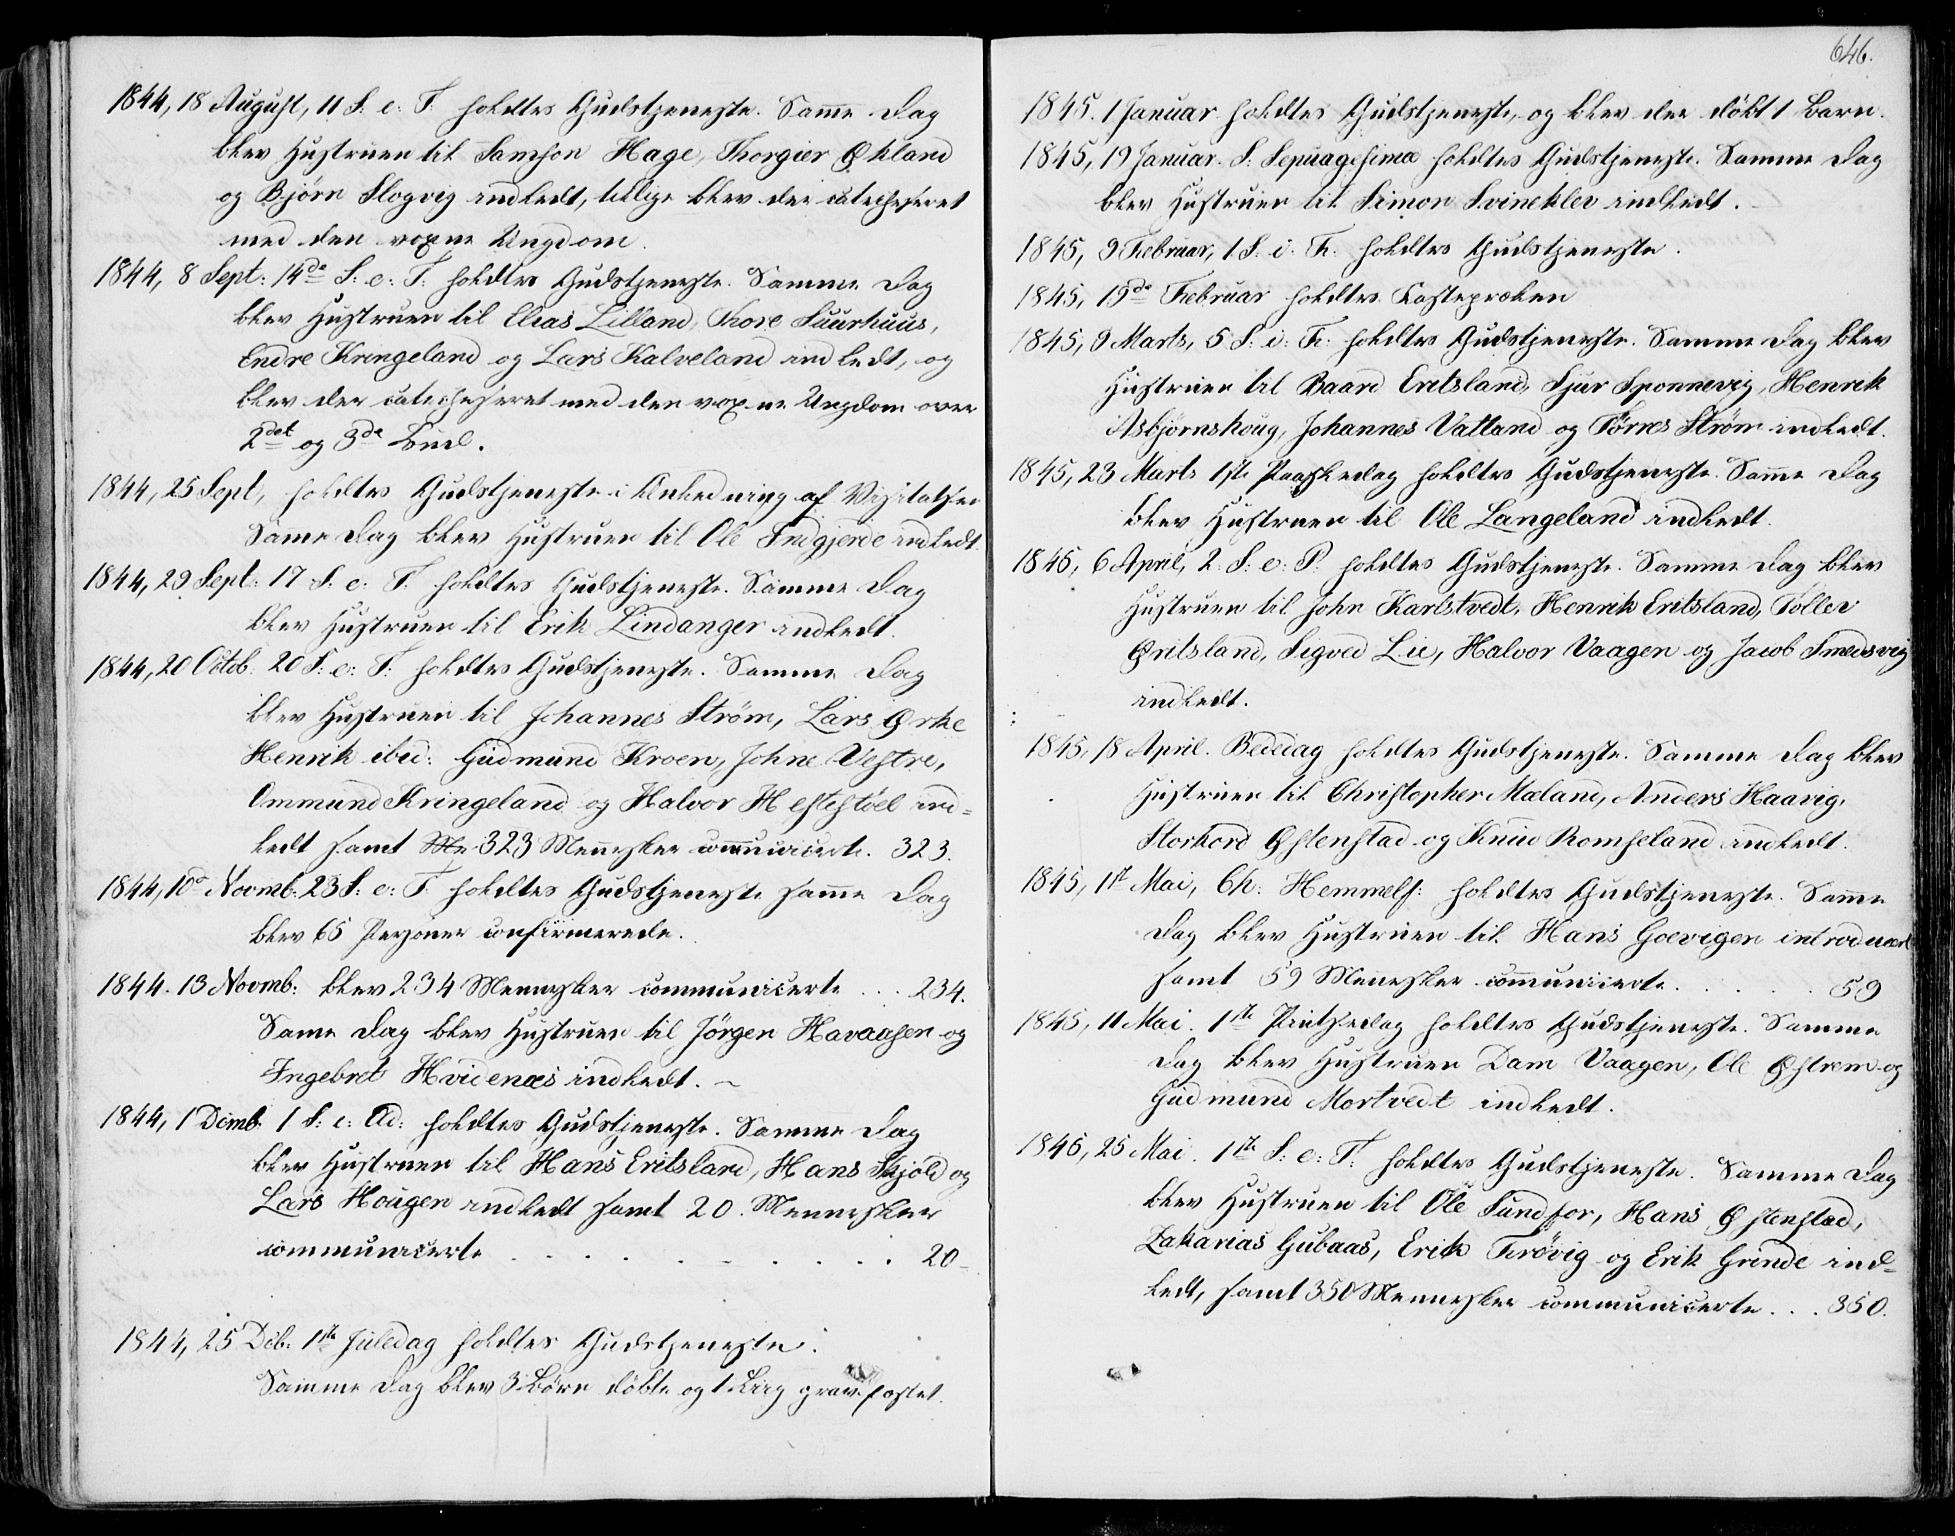 1844, 18 August, 11 S. e. T. holdtes Gudstjeneste. Same Dag
blev Hustruen til Samson Hage, Thorgier Økland
og Bjørn Slogvig indledt, tillige blev der catechiseret
med den voxne Ungdom.
1844, 8 Sept: 14de S: e: T: holdtes Gudstjeneste. Samme Dag
blev Hustruen til Elias Lilland, Thore Suurhuus,
Endre Kringeland og Lars Kalveland indledt, og
blev der catechiseret med den voxne Ungdom over
2det og 3de Bud.
1844, 25 Sept, holdtes Gudstjeneste i Anledning af Visitatsen
Same Dag blev Hustruen til Ole Indgjerde indledt.
1844, 29 Sept: 17 S. e: T. holdtes Gudstjeneste. Samme Dag
blev Hustruen til Erik Lindanger indledt.
1844, 20 Octob: 20 S: e: T: holdtes Gudstjeneste. Samme Dag
blev Hustruen til Johannes Strøm, Lars Ørke
Henrik ibid: Gudmund Kroen, Johne Vestre,
Ommund Kringeland og Halvor Hestestöel ind-
ledt samt 323 Mennesker communicerte. 323.
1844, 10de Novmb: 23 S: e: T. holdtes Gudstjeneste samme Dag
blev 65 Personer confirmerede.
1844. 13 Novmb: blev 234 Mennesker communicerte . . . 234.
Same Dag blev Hustruen til Jörgen Havaasen og
Ingebret Hvidenæs indledt. –
1844, 1 Demb. 1 S: e: Ad: holdtes Gudstjeneste. Samme Dag
blev Hustruen til Hans Eritsland, Hans Skjold og
Lars Hougen indledt samt 20 Mennesker
communicerte . . . . . . . . . 20-
1844, 25 Dcb. 1ste Juledag holdtes Gudstjeneste.
Samme Dag blev 3 Börn döbte og 1 Liig grav.fæstet.
646.
1845. 1 Januar holdtes Gudstjeneste, og blev der döbt 1 Barn.
1845, 19 Januar. S: Sepuagesima holdtes Gudstjeneste. Samme Dag
blev Hustruen til Simon Svineklev indledt.
1845, 9 Februar, 1 S. i. F. holdtes Gudstjeneste.
1845, 19de Februar holdtes Fastepræken
1845, 9 Marts, 5 S: i: F: holdtes Gudstjeneste. Samme Dag blev
Hustruen til Baard Eritsland, Sjur Sponnevig, Henrik
Asbjørnshoug, Johannes Vatland og Törres Strøm indledt.
1845, 23 Marts 1ste Paaskedag holdtes Gudstjeneste. Same Dag
blev Hustruen til Ole Langeland indledt.
1845, 6 April, 2: S: e: P. holdtes Gudstjeneste. Samme Dag blev
Hustruen til John Karlstvedt, Henrik Eritsland, Toller
Øritsland, Sigved Lie, Halvor Vaagen og Jacob Smedsvig
indledt.
1845, 18 April. Bededag holdtes Gudstjeneste. Samme Dag blev
Hustruen til Christopher Mæland, Anders Haavig,
Storkord Østenstad og Knud Romseland indledt.
1845, 1st Mai, Ch: Hemmelf: holdtes Gudstjeneste. Same
Dag blev Hustruen til Hans Goevigen introduceret
samt 59 Mennesker communicerte. . . . . . 59
1845, 11 Mai. 1ste Pintsedag holdtes Gudstjeneste. Samme
Dag blev Hustruen Dam Vaagen, Ole Østrem og
Gudmund Mortvedt indledt.
1845, 25 Mai. 1ste S: e: T: holdtes Gudstjeneste. Samme Dag
blev Hustruen til Ole Sundfor, Hans Østenstad,
Zakarias Gubaas, Erik Trövig og Erik Grinde ind-
ledt, samt 350 Mennesker communicerte . . . 350.